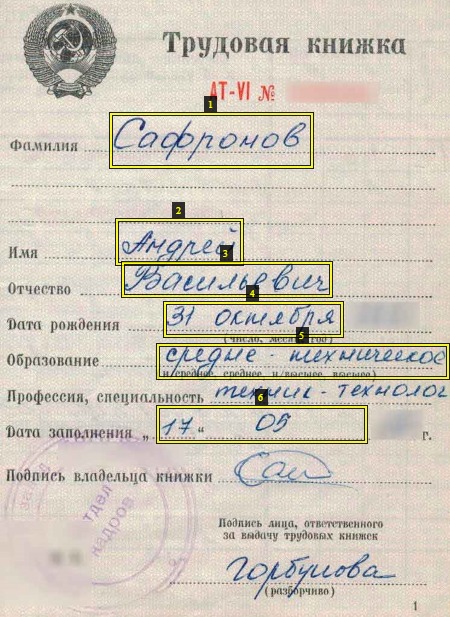 Трудовая книжка
АТ-VI №
Фамилия Сафронов
Имя Андрей
Отчество Васильевич
Дата рождения 31 октября
(число, месяц, год)
Образование средне-техническое
н/среднее, среднее, н/высшее, высшее)
Профессия, специальность техник-технолог
Дата заполнения „ 17 “ 05 г.
Подпись владельца книжки Саф
отдел
кадров
Подпись лица, ответственного
за выдачу трудовых книжек
Горбунова
(разборчиво)
1